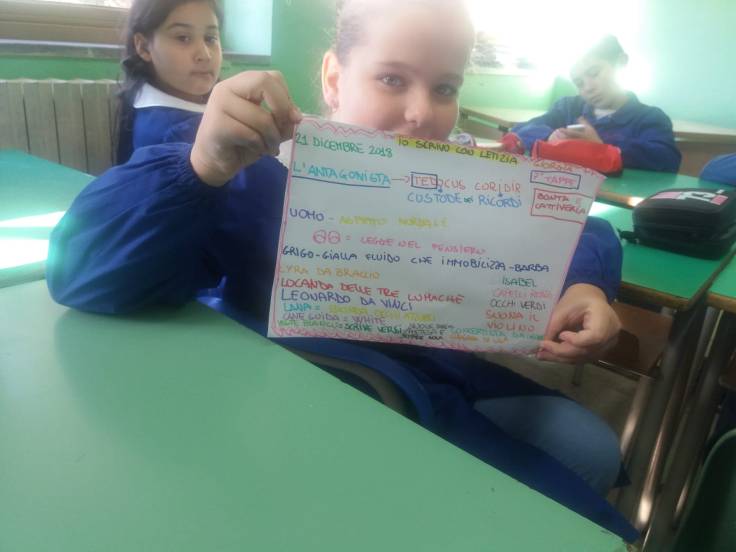 21 DICEMBRE 2018 IO SCRIVO CON LETIZIA GIORGIA
L'ANTAGONISTA → CUS CORIDIR 7ª TAPPA
CUSTODE DEI RICORDI BONTÀ E CATTIVERIA
UOMO - ASPETTO NORMALE
= LEGGE NEL PENSIERO
GRIGO-GIALLA FLUIDO CHE IMMOBILIZZA - BARBA
LYRA DA BRACCIO ISABEL
LOCANDA DELLE TRE LUMACHE CAPELLI ROSSI
LEONARDO DA VINCI OCCHI VERDI
SUONA IL
CANE GUIDA = WHITE VIOLINO
SCRIVE VERSI